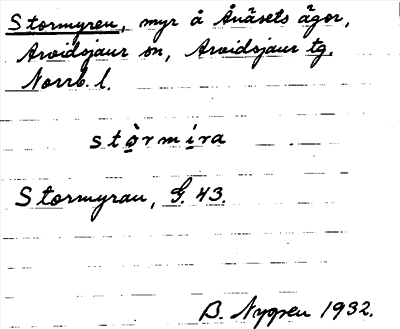 Stormyren, myr å Ånäsets ägor,
Arvidsjaur sn, Arvidsjaur tg.
Norrb. l.
stòrmíra
Stormyran, G. 43.
B. Nygren 1932.